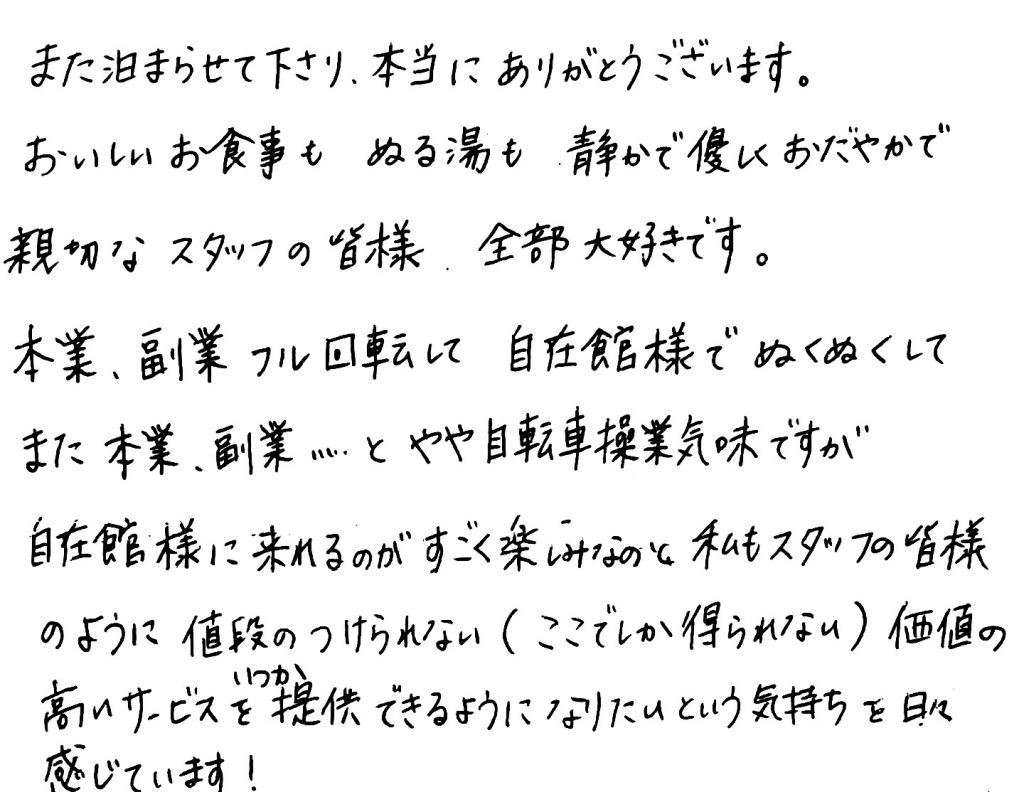 また泊まらせて下さり、本当にありがとうございます。
おいしいお食事も ぬる湯も 静かで優しくおだやかで
親切なスタッフの皆様、全部大好きです。
本業、副業フル回転して 自在館様でぬくぬくして
また本業、副業……とやや自転車操業気味ですが
自在館様に来れるのがすごく楽しみなのと、私もスタッフの皆様
のように値段のつけられない(ここでしか得られない)価値の
高いサービスをいつか提供できるようになりたいという気持ちを日々
感じています!